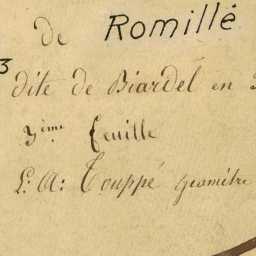 de Romillé
3
dite de Biardel en
3ème feuille
L: A: Touppé Géomètre